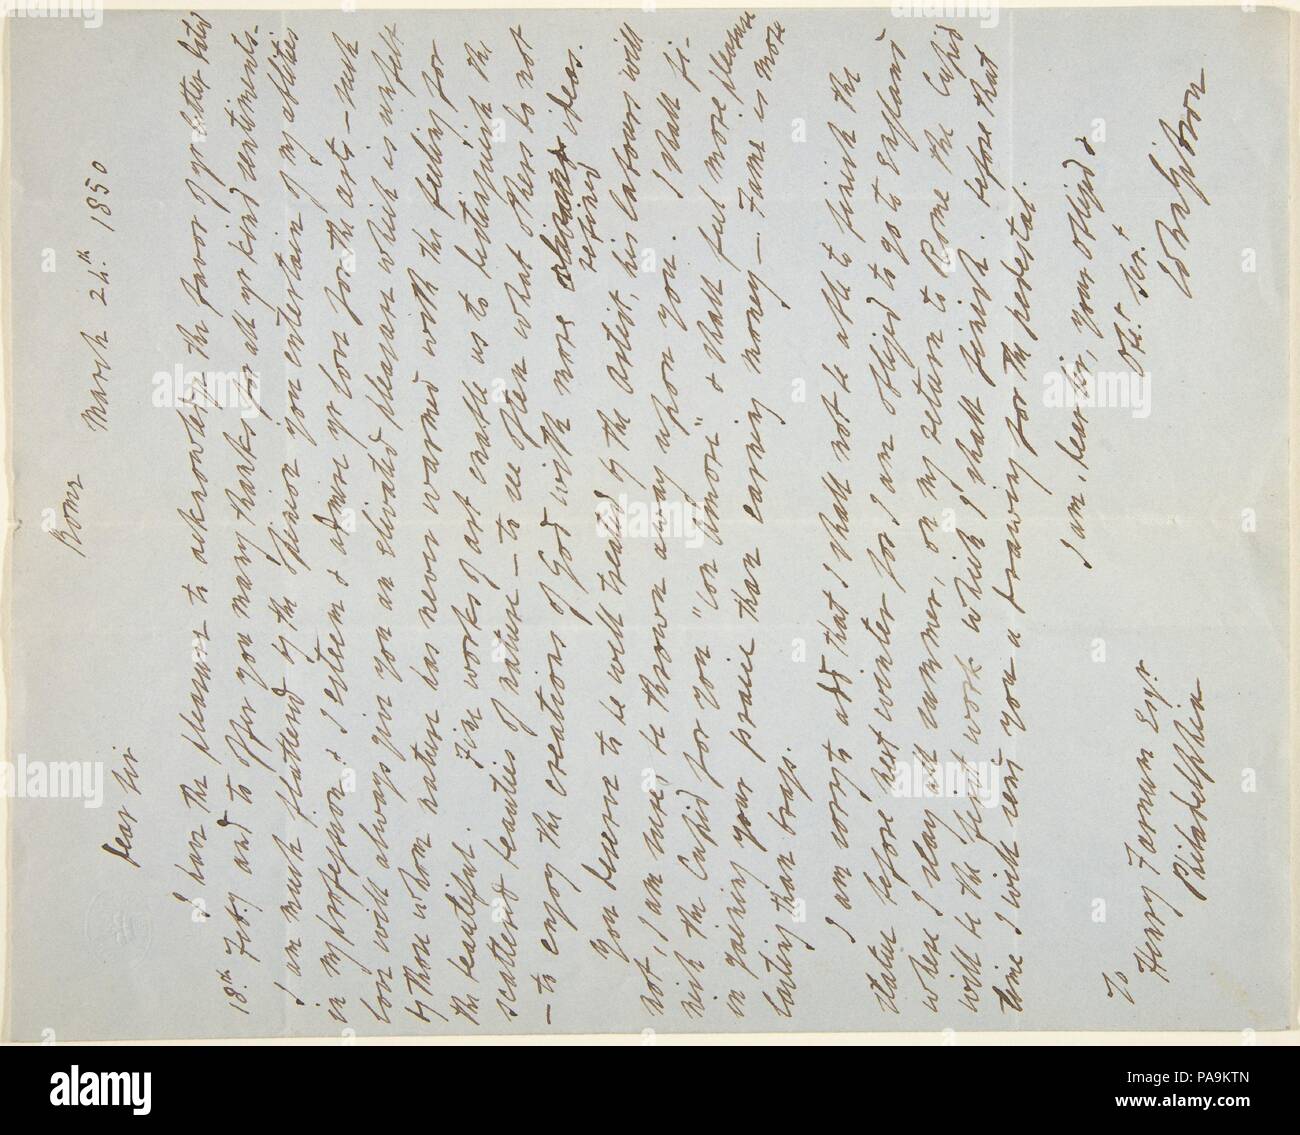 Rome
March 24th. 1850
Dear Sir
I have the pleasure to acknowledge the favor of yr letter datd
18th. Feby and to offer you many thanks for all yr kind sentiments.
I am much flattered by the opinion you entertain of my abilities
in my profession & I esteem & admire yr love for the arts – such
love will always give you an elevated pleasure which is unfelt
by those whom nature has never warmed with the feeling for
the beautiful. Fine works of art enable us to distinguish the
scattered beauties of nature – to see often what others do not
– to enjoy the creations of God with more refined ideas.
You deserve to be well treated by the artist, his labours will
not, I am sure, be thrown away upon you. I shall fi-
nish the Cupid for you "con amore" & shall feel more pleasure
in gaining your praise than earning money –. Fame is more
lasting than brass.
I am sorry to add that I shall not be able to finish the
statue before next winter for I am obliged to go to England
where I stay all summer, on my return to Rome the Cupid
will be the first work which I shall finish. before that
time I will send you a drawing for the pedestal.
I am, dear Sir, your obliged &
Obt. Sert.
John Gibson
To
Henry Farnum Esqr.
Philadelphia
alamy
PA9KTN
www.alamy.com